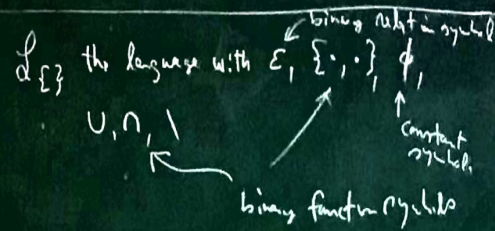 binary relation symbol
ℒ_{ } the language with ε, {·,·}, ∅,
constant
symbol.
∪, ∩, \
binary function symbols